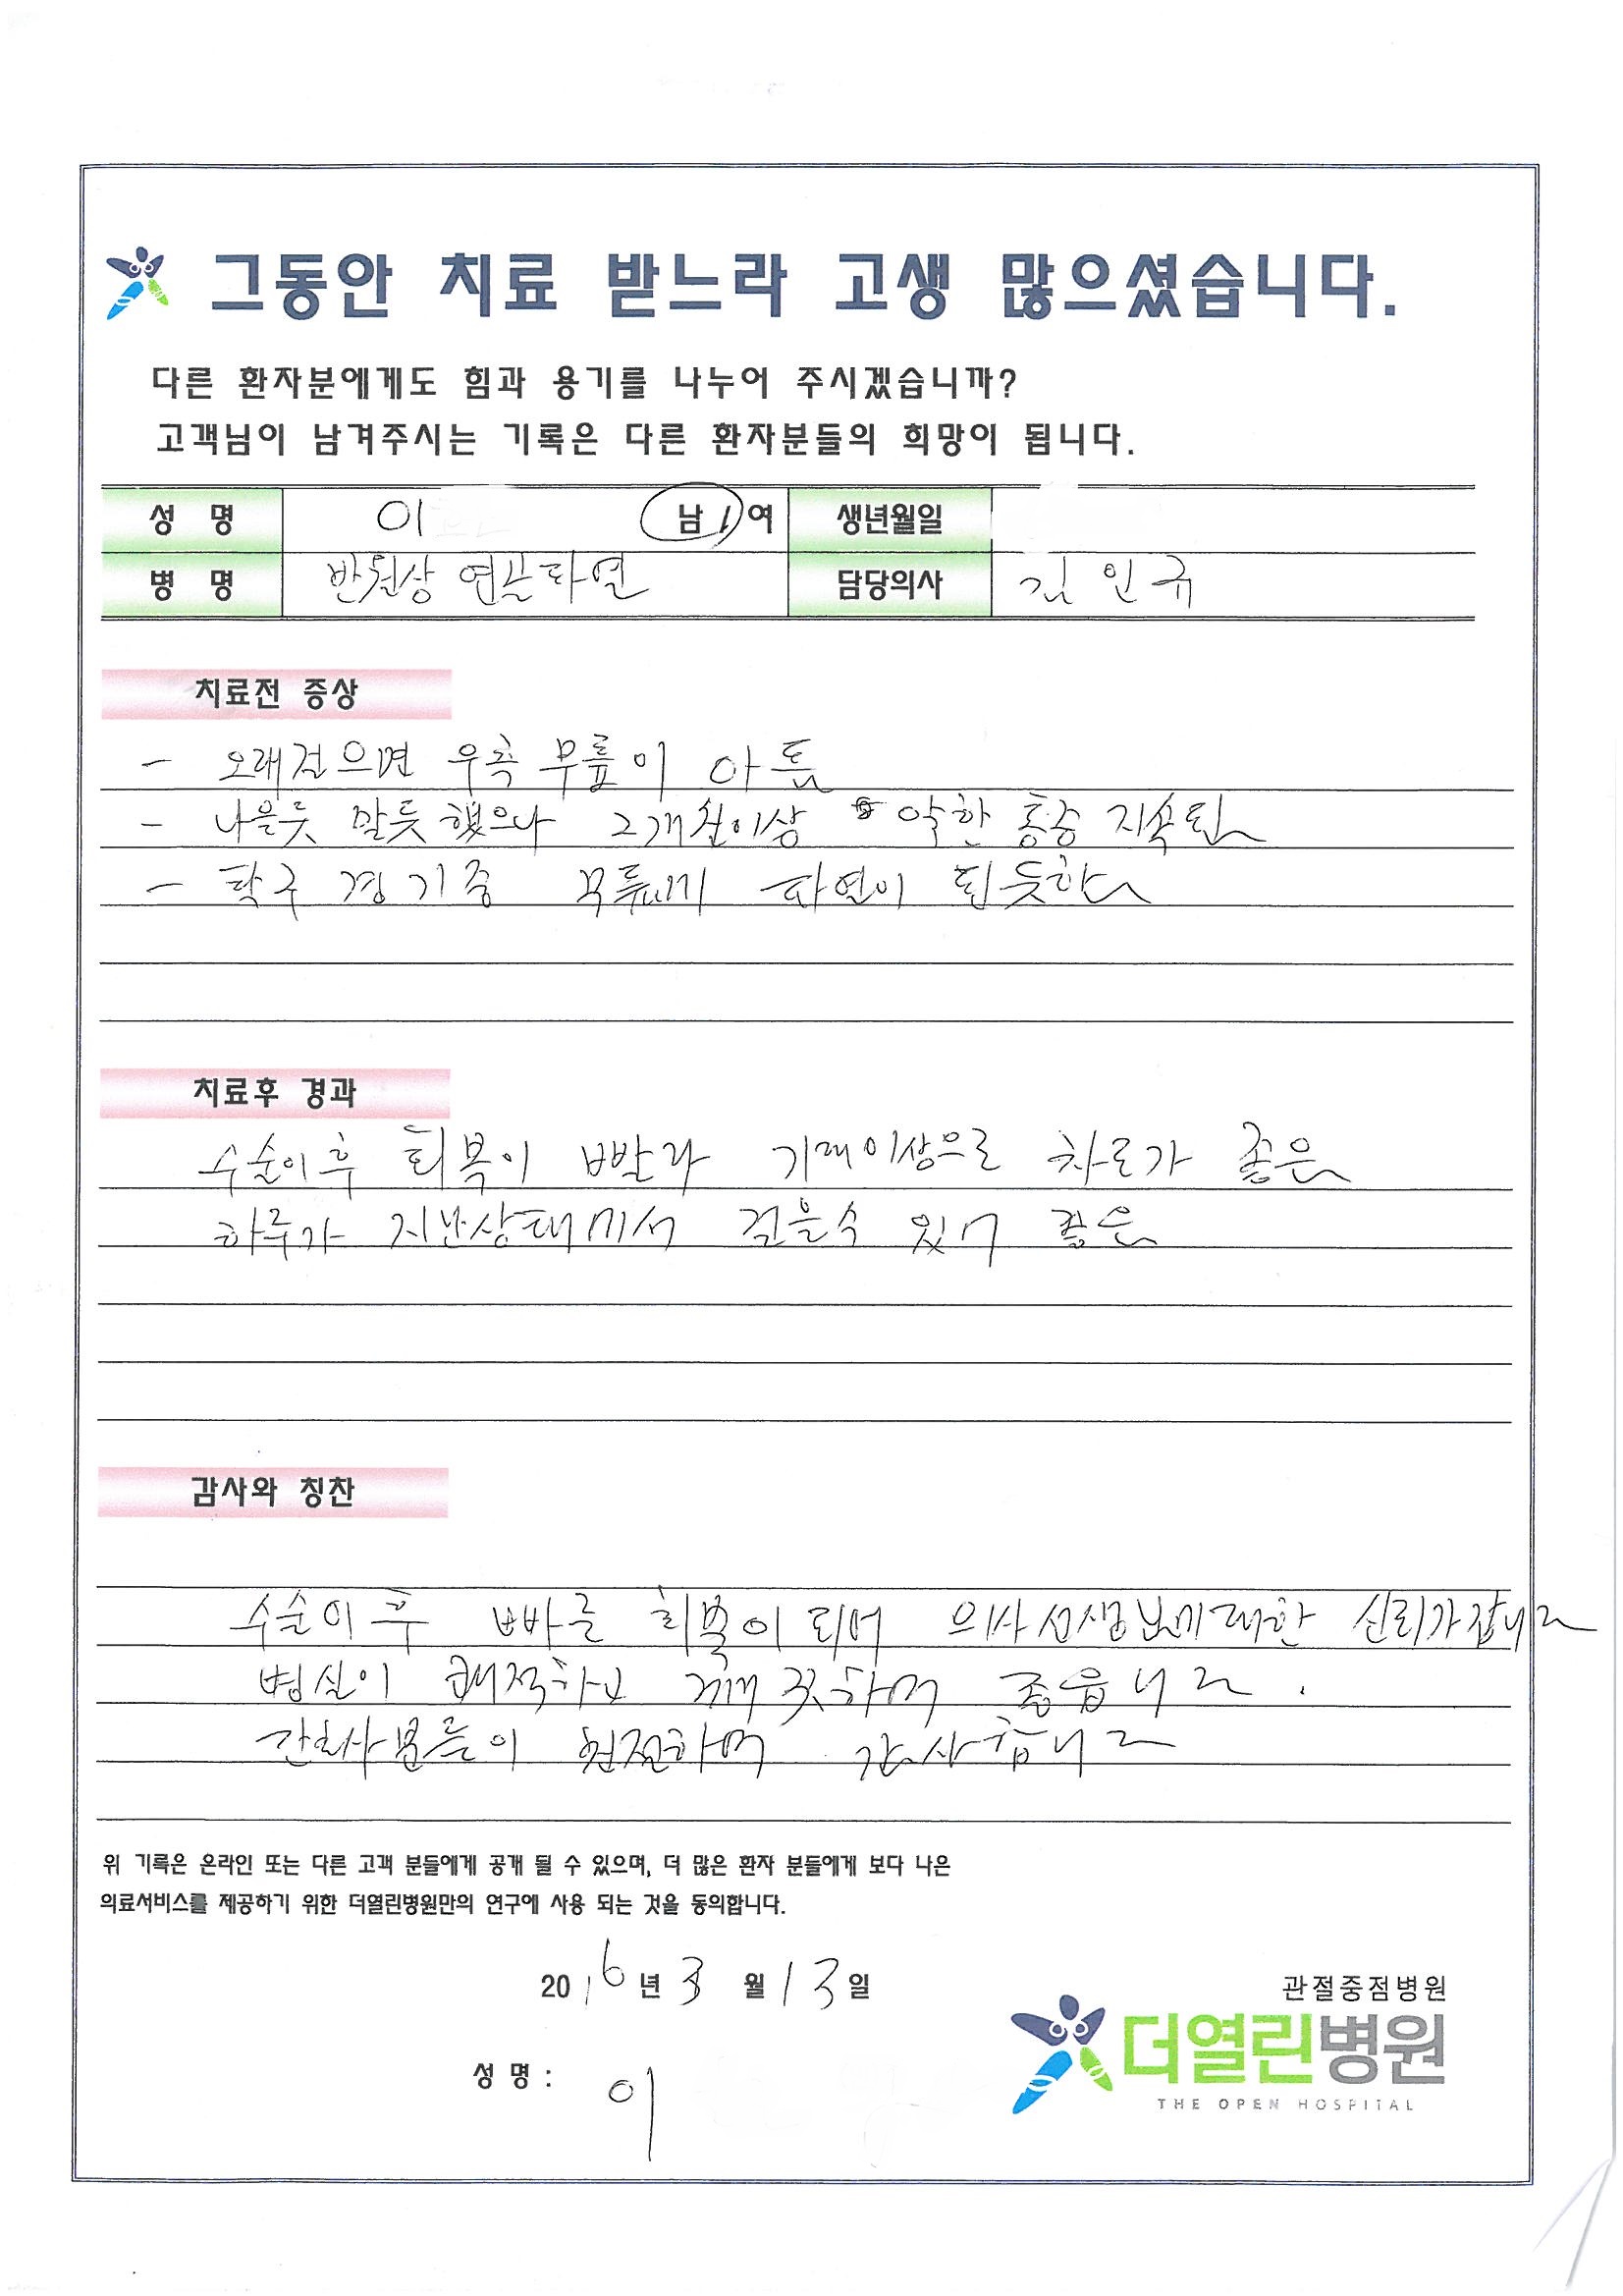 그동안 치료 받느라 고생 많으셨습니다.
다른 환자분에게도 힘과 용기를 나누어 주시겠습니까?
고객님이 남겨주시는 기록은 다른 환자분들의 희망이 됩니다.
성 명 이 남/여 생년월일
병 명 반월상 연골파열 담당의사 김인규
치료전 증상
- 오래걸으면 우측 무릎이 아픔
- 나을듯 말듯 했으나 2개월이상 약한 통증 지속됨
- 탁구 경기중 무릎에 파열이 된듯함
치료후 경과
수술이후 회복이 빨라 기대이상으로 치료가 좋은
하루가 지난상태에서 걸을수 있어 좋은
감사와 칭찬
수술이후 빠른 회복이 되어 의사선생님에대한 신뢰가 갑니다
병실이 쾌적하고 깨끗하여 좋읍니다.
간호사분들이 친절하여 감사합니다
위 기록은 온라인 또는 다른 고객 분들에게 공개 될 수 있으며, 더 많은 환자 분들에게 보다 나은
의료서비스를 제공하기 위한 더열린병원만의 연구에 사용 되는 것을 동의합니다.
2016년 3월 13일
관절중점병원
더열린병원
THE OPEN HOSPITAL
성 명 : 이